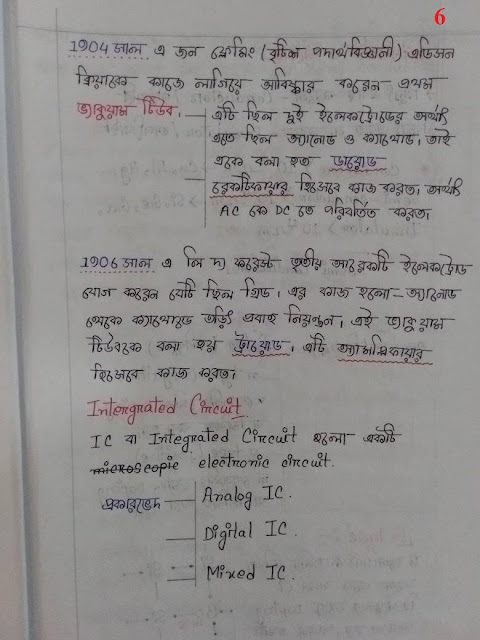 6
1904 সাল এ জন ফ্লেমিং (বৃটিশ পদার্থবিজ্ঞানী) এডিসন
ক্রিয়াকে কাজে লাগিয়ে আবিষ্কার করেন প্রথম
ভ্যাকুয়াম টিউব।
এটি ছিল দুই ইলেকট্রোডের অর্থাৎ
এতে ছিল অ্যানোড ও ক্যাথোড। তাই
একে বলা হত ডায়োড
রেকটিফায়ার হিসেবে কাজ করতো অর্থাৎ
AC কে DC তে পরিবর্তিত করতো
1906 সাল এ লি দ্য ফরেস্ট তৃতীয় আরেকটি ইলেকট্রোড
যোগ করেন যেটি ছিল গ্রিড। এর কাজ হলো – অ্যানোড
থেকে ক্যাথোডে তড়িৎ প্রবাহ নিয়ন্ত্রন। এই ভ্যাকুয়াম
টিউবকে বলা হয় ট্রায়োড। এটি অ্যামপ্লিফায়ার
হিসেবে কাজ করত।
Intergrated Circuit
IC বা Integrated Circuit হলো একটি
microscopic electronic circuit.
প্রকারভেদ
Analog IC.
Digital IC.
Mixed IC.